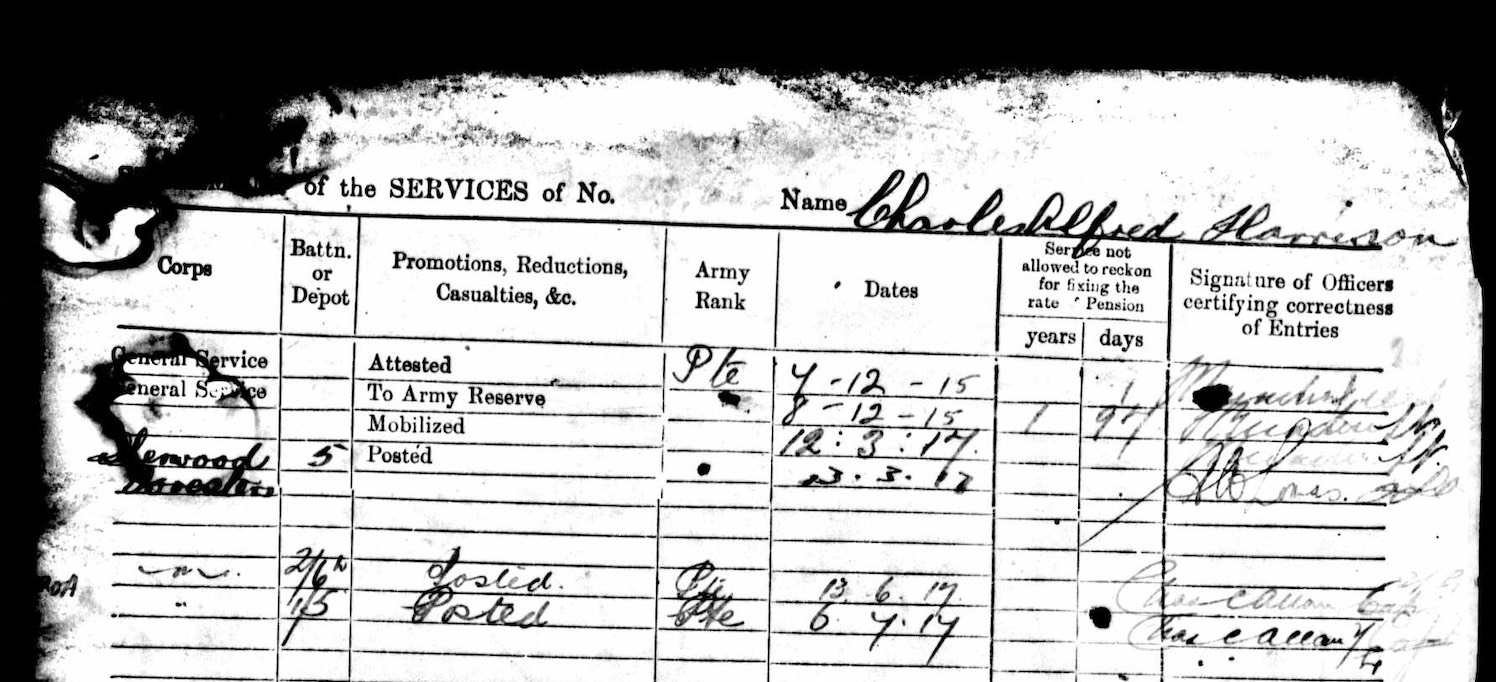 of the SERVICES of No. Name Charles Alfred Harrison
Corps
Battn. or Depot
Promotions, Reductions, Casualties, &c.
Army Rank
Dates
Service not allowed to reckon for fixing the rate Pension
years days
Signature of Officers certifying correctness of Entries
General Service Attested Pte 7-12-15
General Service To Army Reserve 8-12-15 1 94
Mobilized 12:3:17.
Sherwood 5 Posted 13.3.17
Foresters
2/6th Posted. Pte 13.6.17
" 1/5 Posted Pte 6.7.17